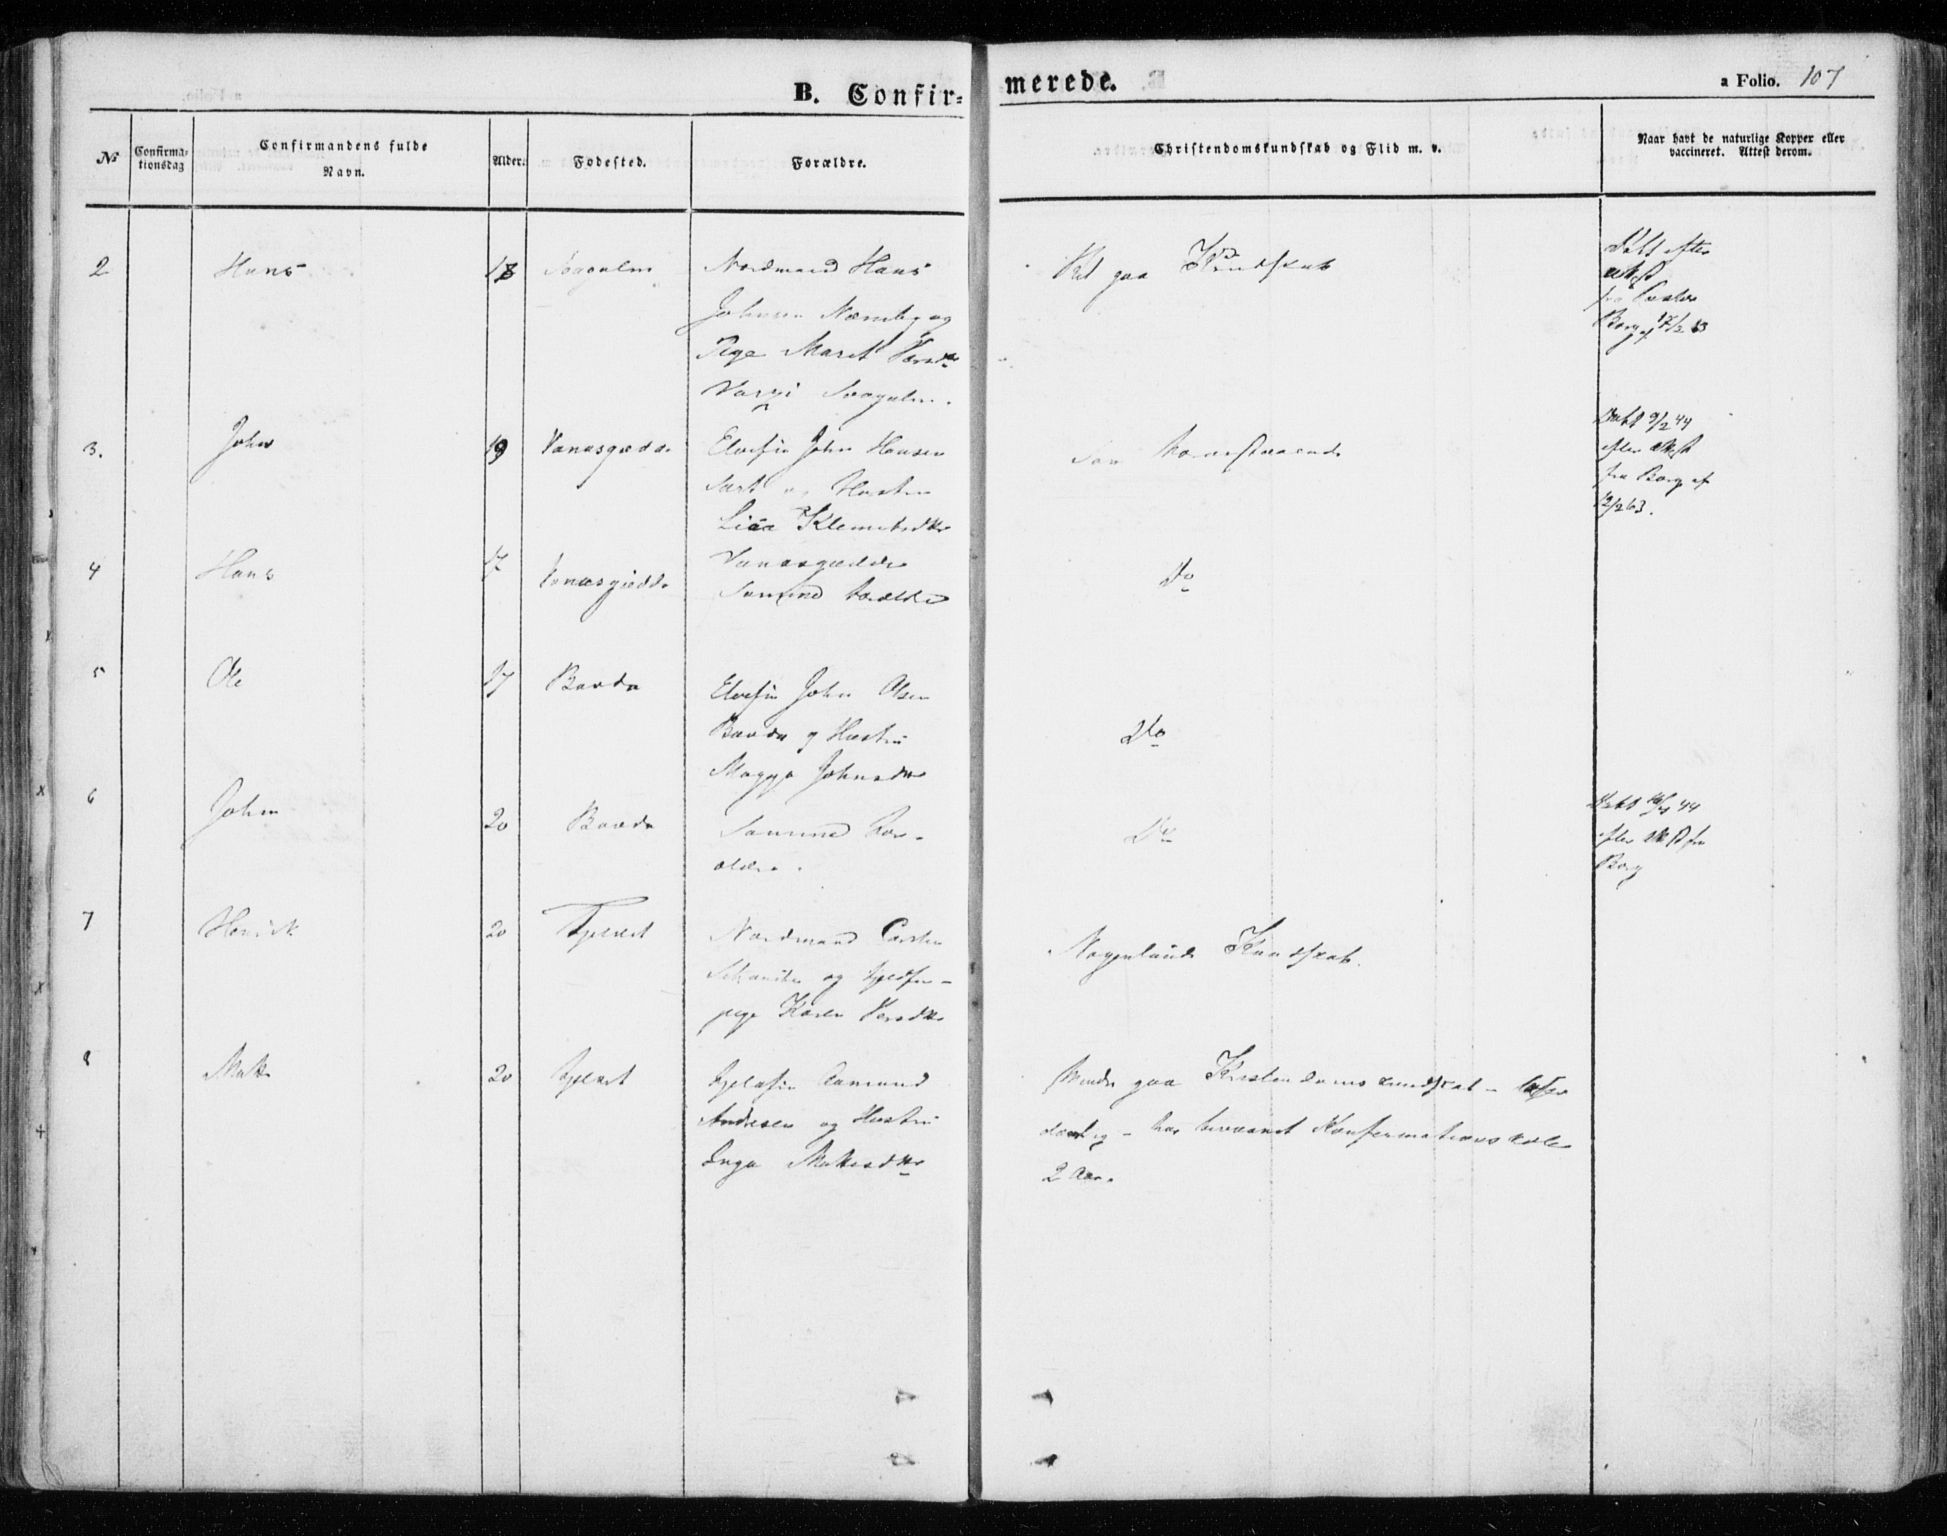 B. Confir=
merede.
a Folio. 107
№
Confirma-
tionsdag
Confirmandens fulde
Navn.
Alder.
Fodested.
Forældre.
Christendomskundskab og Flid m. v.
Naar havt de naturlige Kopper eller
vaccineret. Attest derom.
2
Hans
18
Nordmand Hans
Johnsen og
Pige Marit
gaa Kundskab
efter
Attest
fra
Borg af 17/2 63
3.
John
19
Vanasgiedde
Elvefin John Hansen
Sart og Hustru
Klemetsdtr
Vanasgiedde
Som Novenstaaende
9/2 44
efter Attest
fra Borg af
12/2 63.
4
Hans
17
Vanasgiedde
Samme Forældre
Do
5
Ole
17
Bavda
Elvefin John Olsen
Bavda og Hustru
Magga Johnsdtr
Do
6
John
20
Bavda
Samme For-
ældre.
Do
44
efter Attest fra
Borg
7
Henrik
20
Fjeldet
Nordmand Carsten
og Fjeldfin-
pige Karen Persdtr
Nogenlunde Kundskab.
8
Mathis
20
Fjeldet
Fjeldfin Aamund
Andersen og Hustru
Inga Mathisdtr
Mindre gaa Kristendomskundskab - læser
daarlig - har bivaanet Konfirmationsskole
2 Aar.